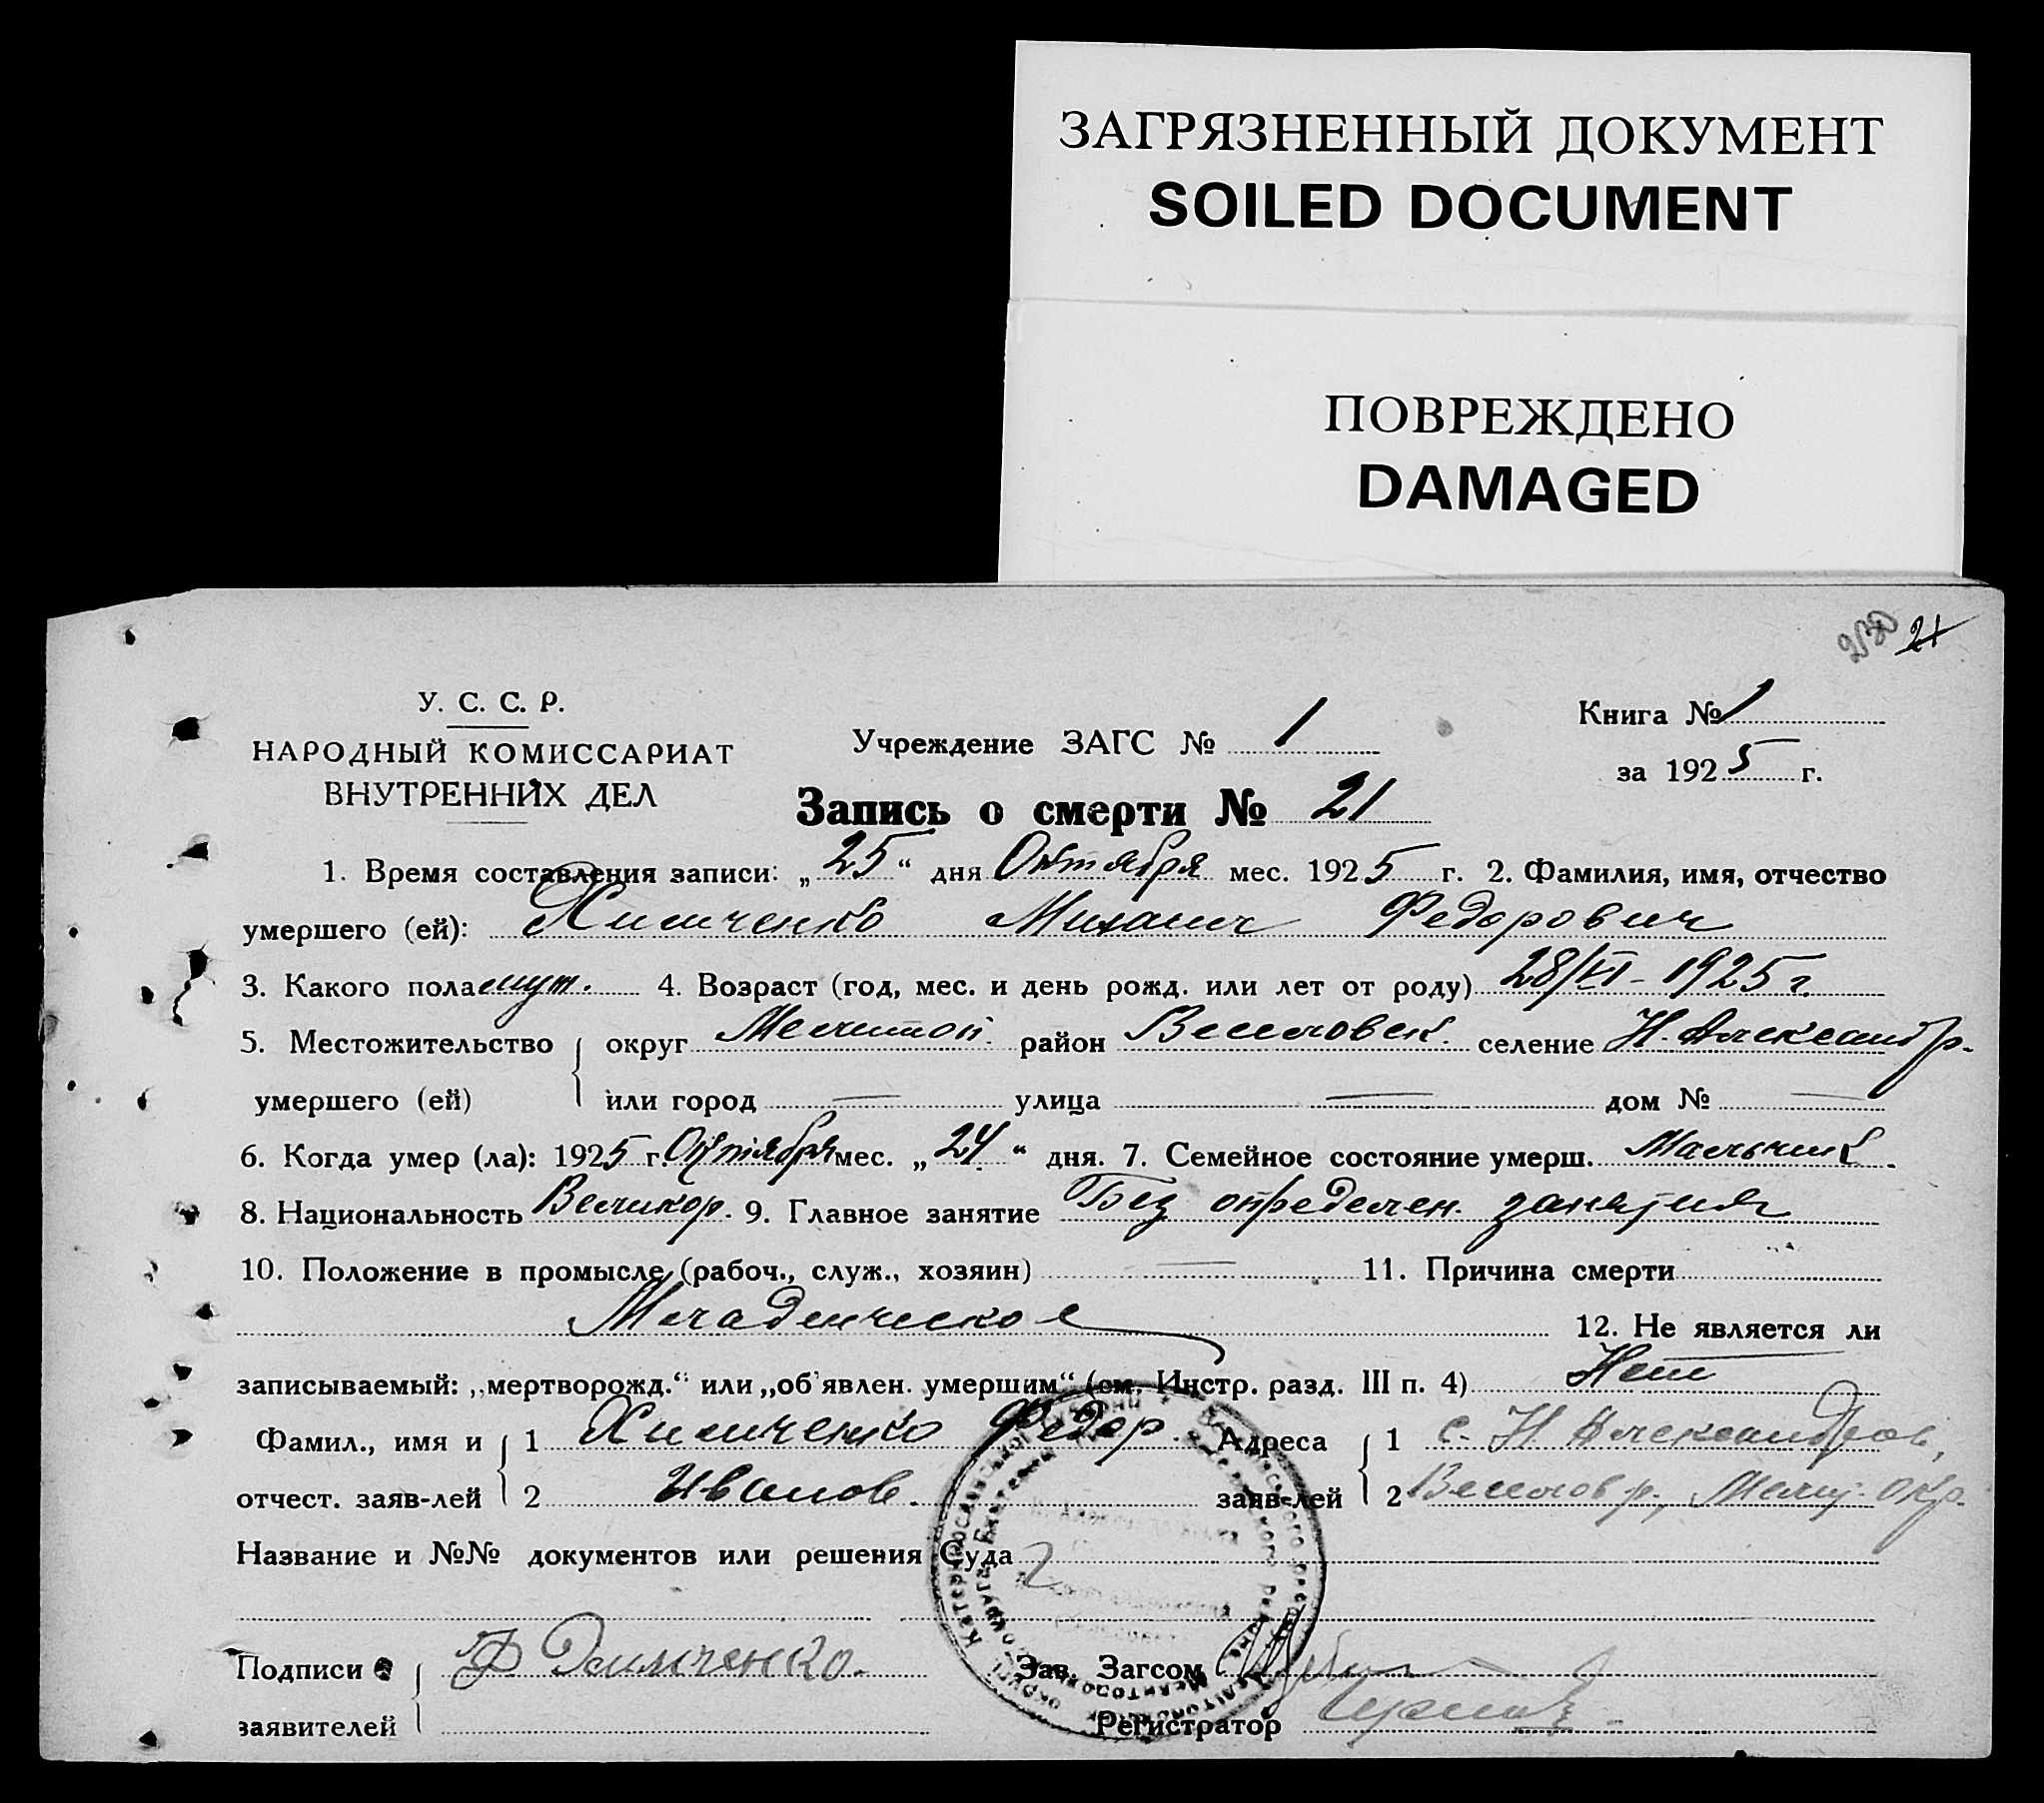 ЗАГРЯЗНЕННЫЙ ДОКУМЕНТ
SOILED DOCUMENT
ПОВРЕЖДЕНО
DAMAGED
21
У. С. С. Р.
НАРОДНЫЙ КОМИССАРИАТ
ВНУТРЕННИХ ДЕЛ
Учреждение ЗАГС № 1
Книга № 1
за 1925 г.
Запись о смерти № 21
1. Время составления записи: „25“ дня Октября мес. 1925 г. 2. Фамилия, имя, отчество
умершего (ей): Химченко Михаил Федорович
3. Какого пола муж. 4. Возраст (год, мес. и день рожд. или лет от роду) 28/VI - 1925 г.
5. Местожительство округ Мелитоп. район Веселовск. селение Н. Александр.
умершего (ей) или город — улица — дом № —
6. Когда умер (ла): 1925 г. Октября мес. „24“ дня. 7. Семейное состояние умерш. Мальчик.
8. Национальность Великор. 9. Главное занятие Без определен. занятия
10. Положение в промысле (рабоч., служ., хозяин) — 11. Причина смерти
Младенческое 12. Не является ли
записываемый: „мертворожд.“ или „об'явлен. умершим“ (см. Инстр. разд. III п. 4) Нет
Фамил., имя и 1 Химченко Федор Адреса 1 с. Н. Александров,
отчест. заяв-лей 2 Иванов. заяв-лей 2 Веселов р., Мелит. окр.
Название и №№ документов или решения Суда
Подписи Ф Химченко. Зав. Загсом
заявителей Регистратор